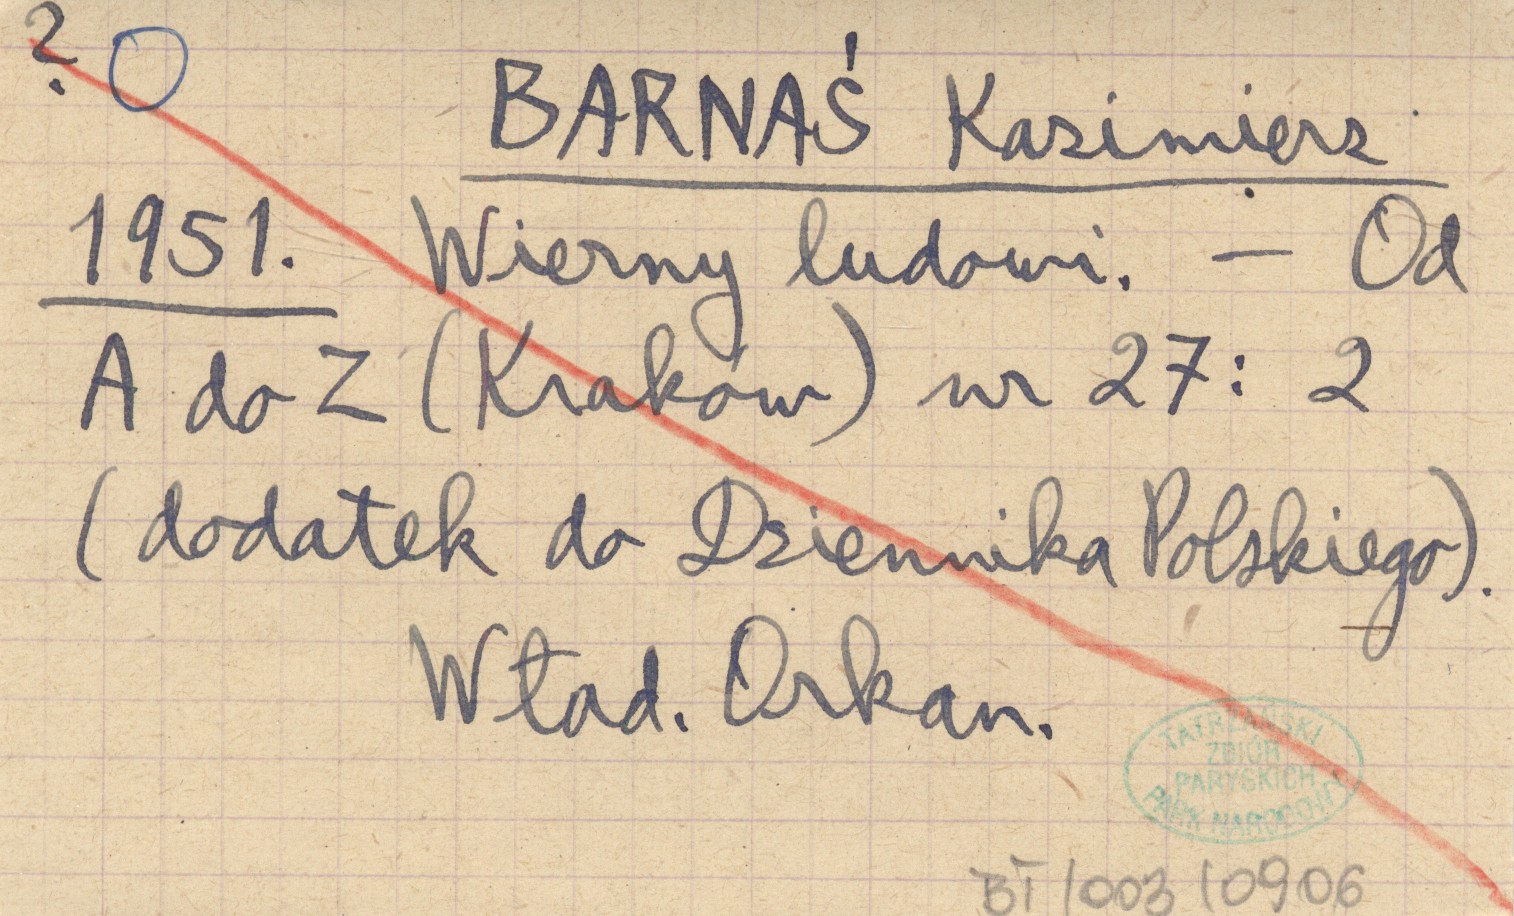 ?
BARNAŚ Kazimierz
1951. Wierny ludowi. — Od
A do Z (Kraków) nr 27: 2
(dodatek do Dziennika Polskiego).
Wład. Orkan.
TATRZAŃSKI
ZBIÓR
PARYSKICH
PARK NARODOWY
BT/003/0906